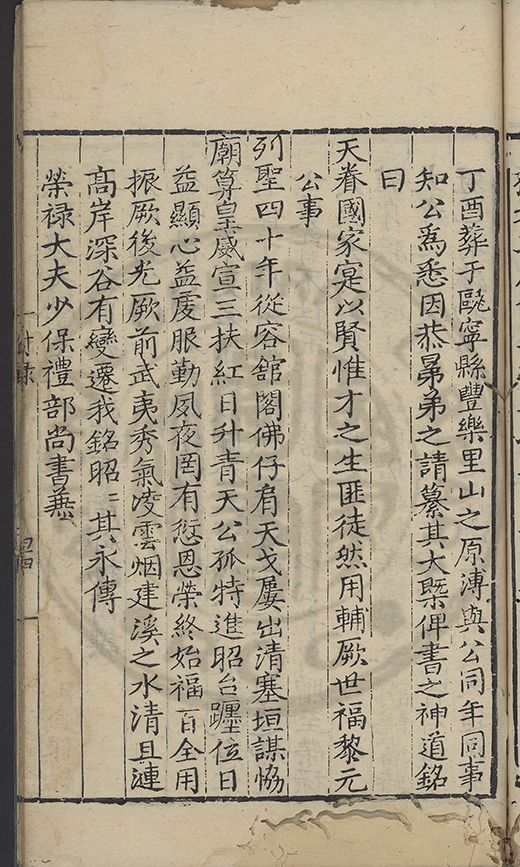 丁酉葬于甌寧縣豐樂里山之原溥與公同年同事
知公爲悉因恭㬎弟之請纂其大槩俾書之神道銘
曰
天眷國家寔以賢惟才之生匪徒然用輔厥世福黎元
公事
列聖四十年從容舘閣佛仔肩天戈屢出清塞垣謀恊
廟算皇威宣三扶紅日升青天公孤特進昭台躔位日
益顯心益虔服勤夙夜罔有愆恩榮終始福百全用
振厥後光厥前武夷秀氣凌雲烟建溪之水清且漣
高岸深谷有變遷我銘昭〻其永傳
榮禄大夫少保禮部尚書兼
附録